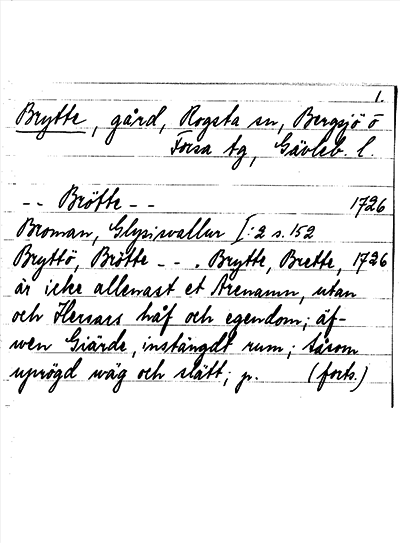 1.
Brytte, gård, Rogsta sn, Bergsjö o
Forsa tg, Gävleb. l.
-- Brötte -- 1726
Broman, Glysisvallur I:2 s. 152
Bryttö, Brötte - - . Brytte, Brette, 1726
är icke allenast et Årenamn, utan
och Hersars håf och egendom; äf-
wen Giärde, instängdt rum; såsom
uprögd wäg och slätt; p. (forts.)